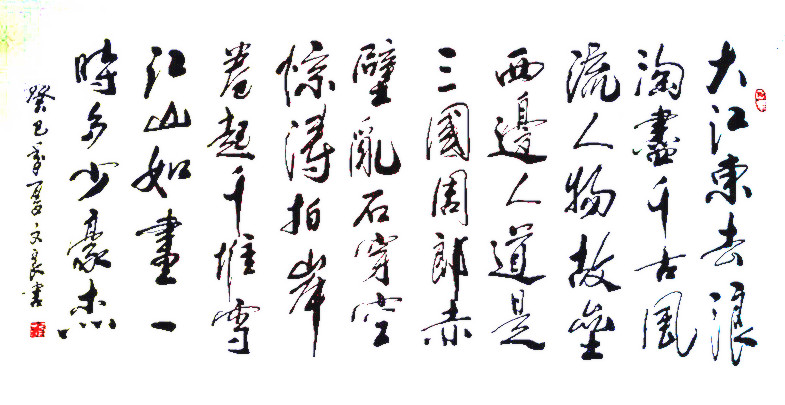 大江東去浪
淘盡千古風
流人物故壘
西邊人道是
三國周郎赤
壁亂石穿空
惊濤拍岸
卷起千堆雪
江山如畫一
時多少豪杰
癸巳年夏文良書